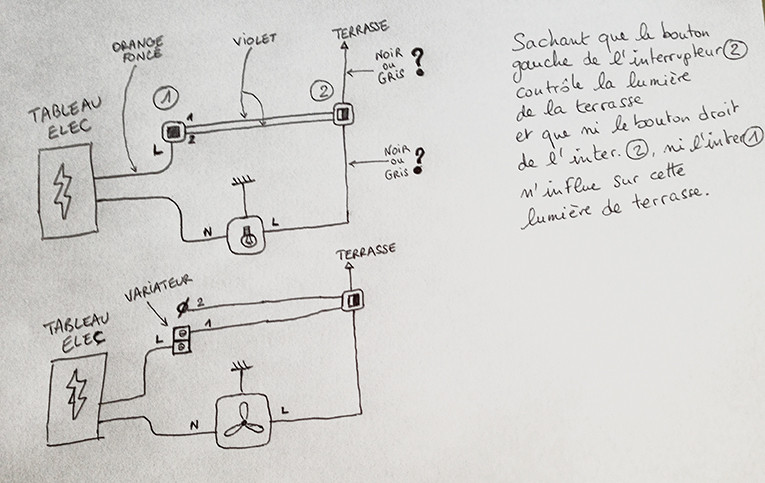 TERRASSE
ORANGE
FONCÉ
VIOLET
NOIR
OU
GRIS ?
TABLEAU
ELEC
1
2
1
2
L
NOIR
OU
GRIS ?
N
L
Sachant que le bouton
gauche de l'interrupteur 2
contrôle la lumière
de la terrasse
et que ni le bouton droit
de l'inter. 2, ni l'inter 1
n'influe sur cette
lumière de terrasse.
TERRASSE
VARIATEUR
2
1
TABLEAU
ELEC
L
N
L